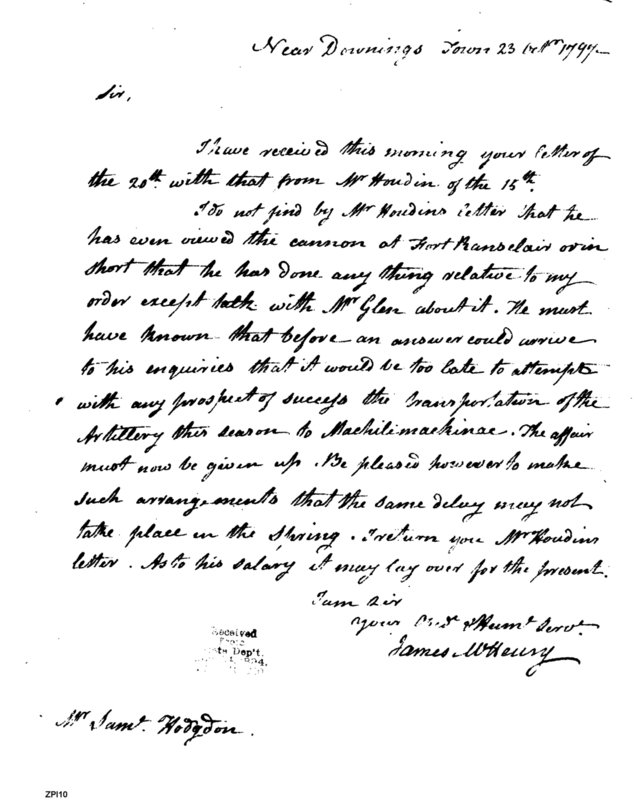 Near Downings Town 23 Octbr 1797
Sir,
I have received this morning your letter of
the 20th with that from Mr Houdin of the 15th.
I do not find by Mr Houdins letter that he
has even viewed the cannon at Fort Ranselair or in
short that he has done any thing relative to my
order except talk with Mr Glen about it. He must
have known that before an answer could arrive
to his enquiries that it would be too late to attempt
with any prospect of success the transportation of the
Artillery this season to Machilimackinac. The affair
must now be given up. Be pleased however to make
such arrangements that the same delay may not
take place in the Spring. I return you Mr Houdins
letter. As to his salary it may lay over for the present.
I am Sir
your Obdt & Humt Servt
James McHenry
Received
From
Dep't.
Mr Saml. Hodgdon.
ZPI10